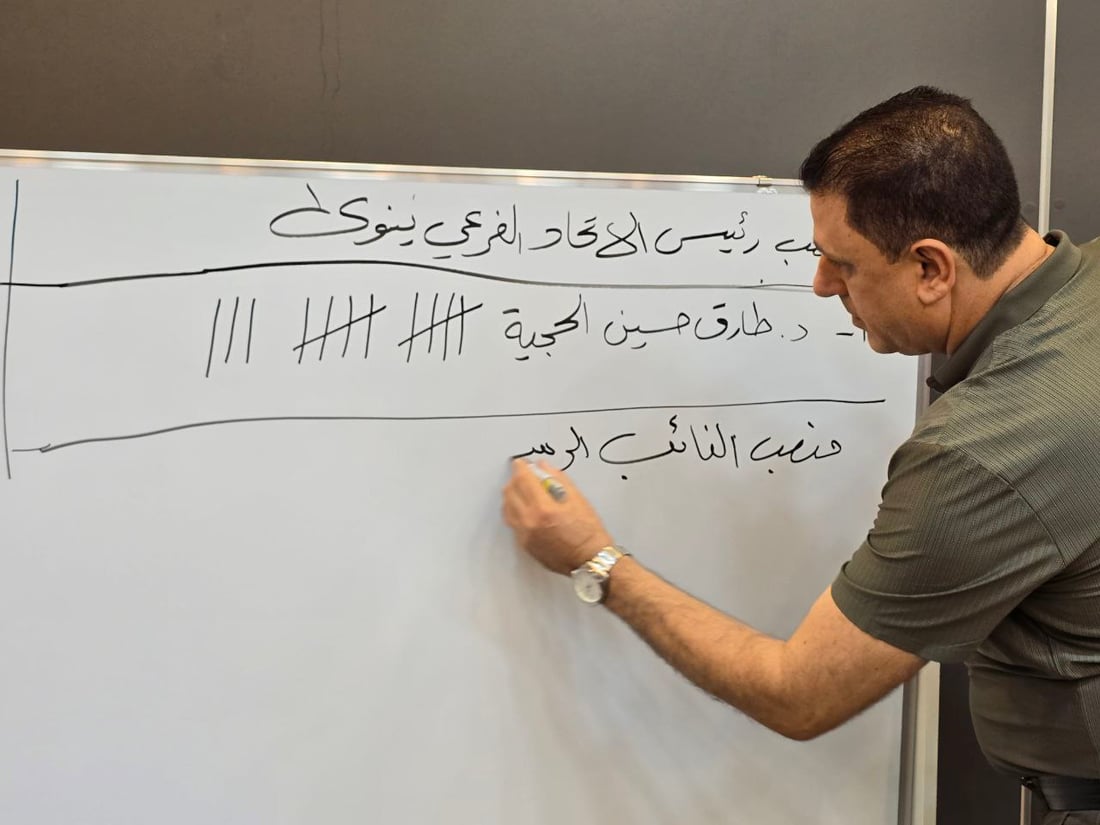 ـصب رئيس الاتحاد الفرعي نينوى
١- د. طارق حسين الحجية
منصب النائب الرسـ